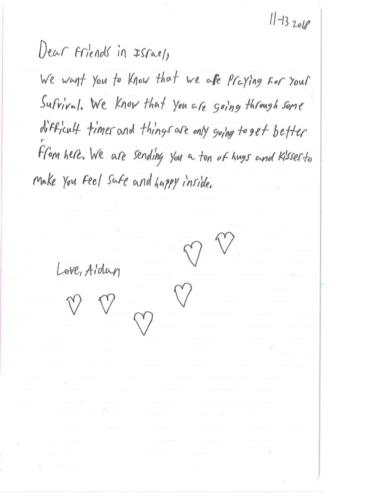 11-13 2018
Dear Friends in Israel,
We want you to know that we are Praying For your
Survival. We know that you are going through some
difficult times and things are only going to get better
from here. We are sending you a ton of hugs and kisses to
make you feel safe and happy inside.
Love, Aidan